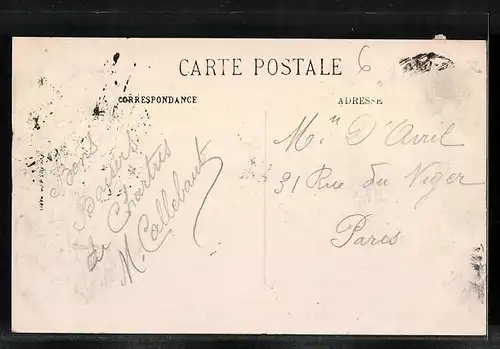 CARTE POSTALE
6
CORRESPONDANCE
ADRESSE
Bons
Baisers
de Chartres
M. Callebaut
M.n D'Avril
31 Rue du Niger
Paris